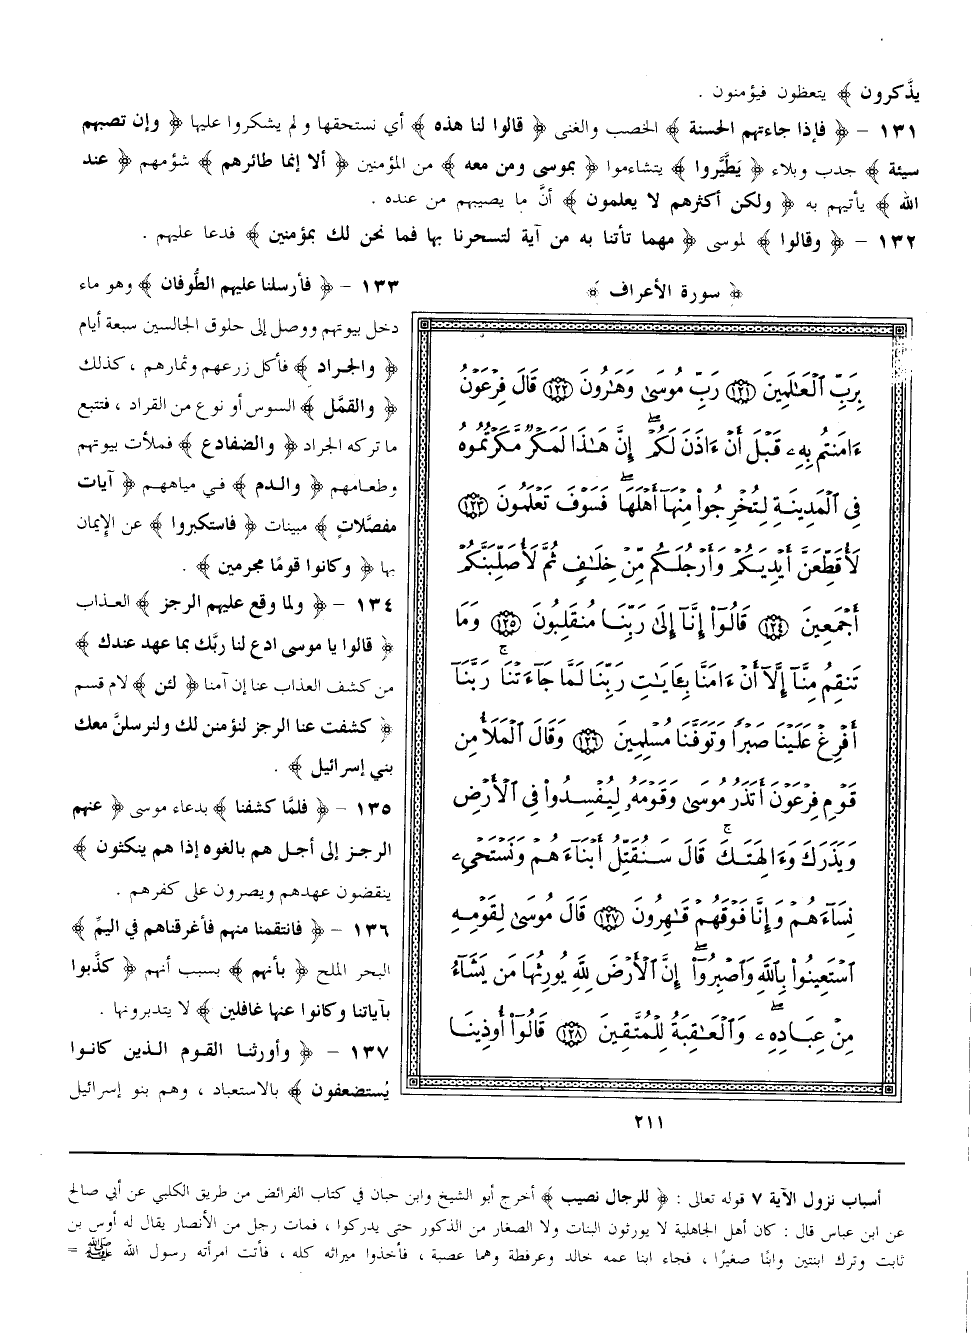 يذَّكرون ﴾ يتعظون فيؤمنون .
١٣١ – ﴿ فإذا جاءتهم الحسنة ﴾ الخصب والغنى ﴿ قالوا لنا هذه ﴾ أي نستحقها ولم يشكروا عليها ﴿ وإن تصبهم
سيئة ﴾ جدب وبلاء ﴿ يَطَّيَّروا ﴾ يتشاءموا ﴿ بموسى ومن معه ﴾ من المؤمنين ﴿ ألا إنما طائرهم ﴾ شؤمهم ﴿ عند
الله ﴾ يأتيهم به ﴿ ولكن أكثرهم لا يعلمون ﴾ أنَّ ما يصيبهم من عنده .
١٣٢ – ﴿ وقالوا ﴾ لموسى ﴿ مهما تأتنا به من آية لتسحرنا بها فما نحن لك بمؤمنين ﴾ فدعا عليهم .
﴿ سورة الأعراف ﴾
بِرَبِّ ٱلْعَٰلَمِينَ ١٢١ رَبِّ مُوسَىٰ وَهَٰرُونَ ١٢٢ قَالَ فِرْعَوْنُ
ءَامَنتُم بِهِۦ قَبْلَ أَنْ ءَاذَنَ لَكُمْ ۖ إِنَّ هَٰذَا لَمَكْرٌ مَّكَرْتُمُوهُ
فِى ٱلْمَدِينَةِ لِتُخْرِجُوا۟ مِنْهَآ أَهْلَهَا ۖ فَسَوْفَ تَعْلَمُونَ ١٢٣
لَأُقَطِّعَنَّ أَيْدِيَكُمْ وَأَرْجُلَكُم مِّنْ خِلَٰفٍ ثُمَّ لَأُصَلِّبَنَّكُمْ
أَجْمَعِينَ ١٢٤ قَالُوٓا۟ إِنَّآ إِلَىٰ رَبِّنَا مُنقَلِبُونَ ١٢٥ وَمَا
تَنقِمُ مِنَّآ إِلَّآ أَنْ ءَامَنَّا بِـَٔايَٰتِ رَبِّنَا لَمَّا جَآءَتْنَا ۚ رَبَّنَآ
أَفْرِغْ عَلَيْنَا صَبْرًا وَتَوَفَّنَا مُسْلِمِينَ ١٢٦ وَقَالَ ٱلْمَلَأُ مِن
قَوْمِ فِرْعَوْنَ أَتَذَرُ مُوسَىٰ وَقَوْمَهُۥ لِيُفْسِدُوا۟ فِى ٱلْأَرْضِ
وَيَذَرَكَ وَءَالِهَتَكَ ۚ قَالَ سَنُقَتِّلُ أَبْنَآءَهُمْ وَنَسْتَحْىِۦ
نِسَآءَهُمْ وَإِنَّا فَوْقَهُمْ قَٰهِرُونَ ١٢٧ قَالَ مُوسَىٰ لِقَوْمِهِ
ٱسْتَعِينُوا۟ بِٱللَّهِ وَٱصْبِرُوٓا۟ ۖ إِنَّ ٱلْأَرْضَ لِلَّهِ يُورِثُهَا مَن يَشَآءُ
مِنْ عِبَادِهِۦ ۖ وَٱلْعَٰقِبَةُ لِلْمُتَّقِينَ ١٢٨ قَالُوٓا۟ أُوذِينَا
٢١١
١٣٣ – ﴿ فأرسلنا عليهم الطُّوفان ﴾ وهو ماء
دخل بيوتهم ووصل إلى حلوق الجالسين سبعة أيام
﴿ والجراد ﴾ فأكل زرعهم وثمارهم ، كذلك
﴿ والقمَّل ﴾ السوس أو نوع من القراد ، فتتبع
ما تركه الجراد ﴿ والضفادع ﴾ فملأت بيوتهم
وطعامهم ﴿ والدم ﴾ في مياههم ﴿ آيات
مفصَّلاتٍ ﴾ مبينات ﴿ فاستكبروا ﴾ عن الإيمان
بها ﴿ وكانوا قومًا مجرمين ﴾ .
١٣٤ – ﴿ ولما وقع عليهم الرجز ﴾ العذاب
﴿ قالوا يا موسى ادع لنا ربَّك بما عهد عندك ﴾
من كشف العذاب عنا إن آمنا ﴿ لئن ﴾ لام قسم
﴿ كشفت عنا الرجز لنؤمنن لك ولنرسلنَّ معك
بني إسرائيل ﴾ .
١٣٥ – ﴿ فلمَّا كشفنا ﴾ بدعاء موسى ﴿ عنهم
الرجز إلى أجل هم بالغوه إذا هم ينكثون ﴾
ينقضون عهدهم ويصرون على كفرهم .
١٣٦ – ﴿ فانتقمنا منهم فأغرقناهم في اليمِّ ﴾
البحر الملح ﴿ بأنهم ﴾ بسبب أنهم ﴿ كذَّبوا
بآياتنا وكانوا عنها غافلين ﴾ لا يتدبرونها .
١٣٧ – ﴿ وأورثنا القوم الذين كانوا
يُستضعفون ﴾ بالاستعباد ، وهم بنو إسرائيل
أسباب نزول الآية ٧ قوله تعالى : ﴿ للرجال نصيب ﴾ أخرج أبو الشيخ وابن حبان في كتاب الفرائض من طريق الكلبي عن أبي صالح
عن ابن عباس قال : كان أهل الجاهلية لا يورثون البنات ولا الصغار من الذكور حتى يدركوا ، فمات رجل من الأنصار يقال له أوس بن
ثابت وترك ابنتين وابنًا صغيرًا ، فجاء ابنا عمه خالد وعرفطة وهما عصبة ، فأخذوا ميراثه كله ، فأتت امرأته رسول الله ﷺ =